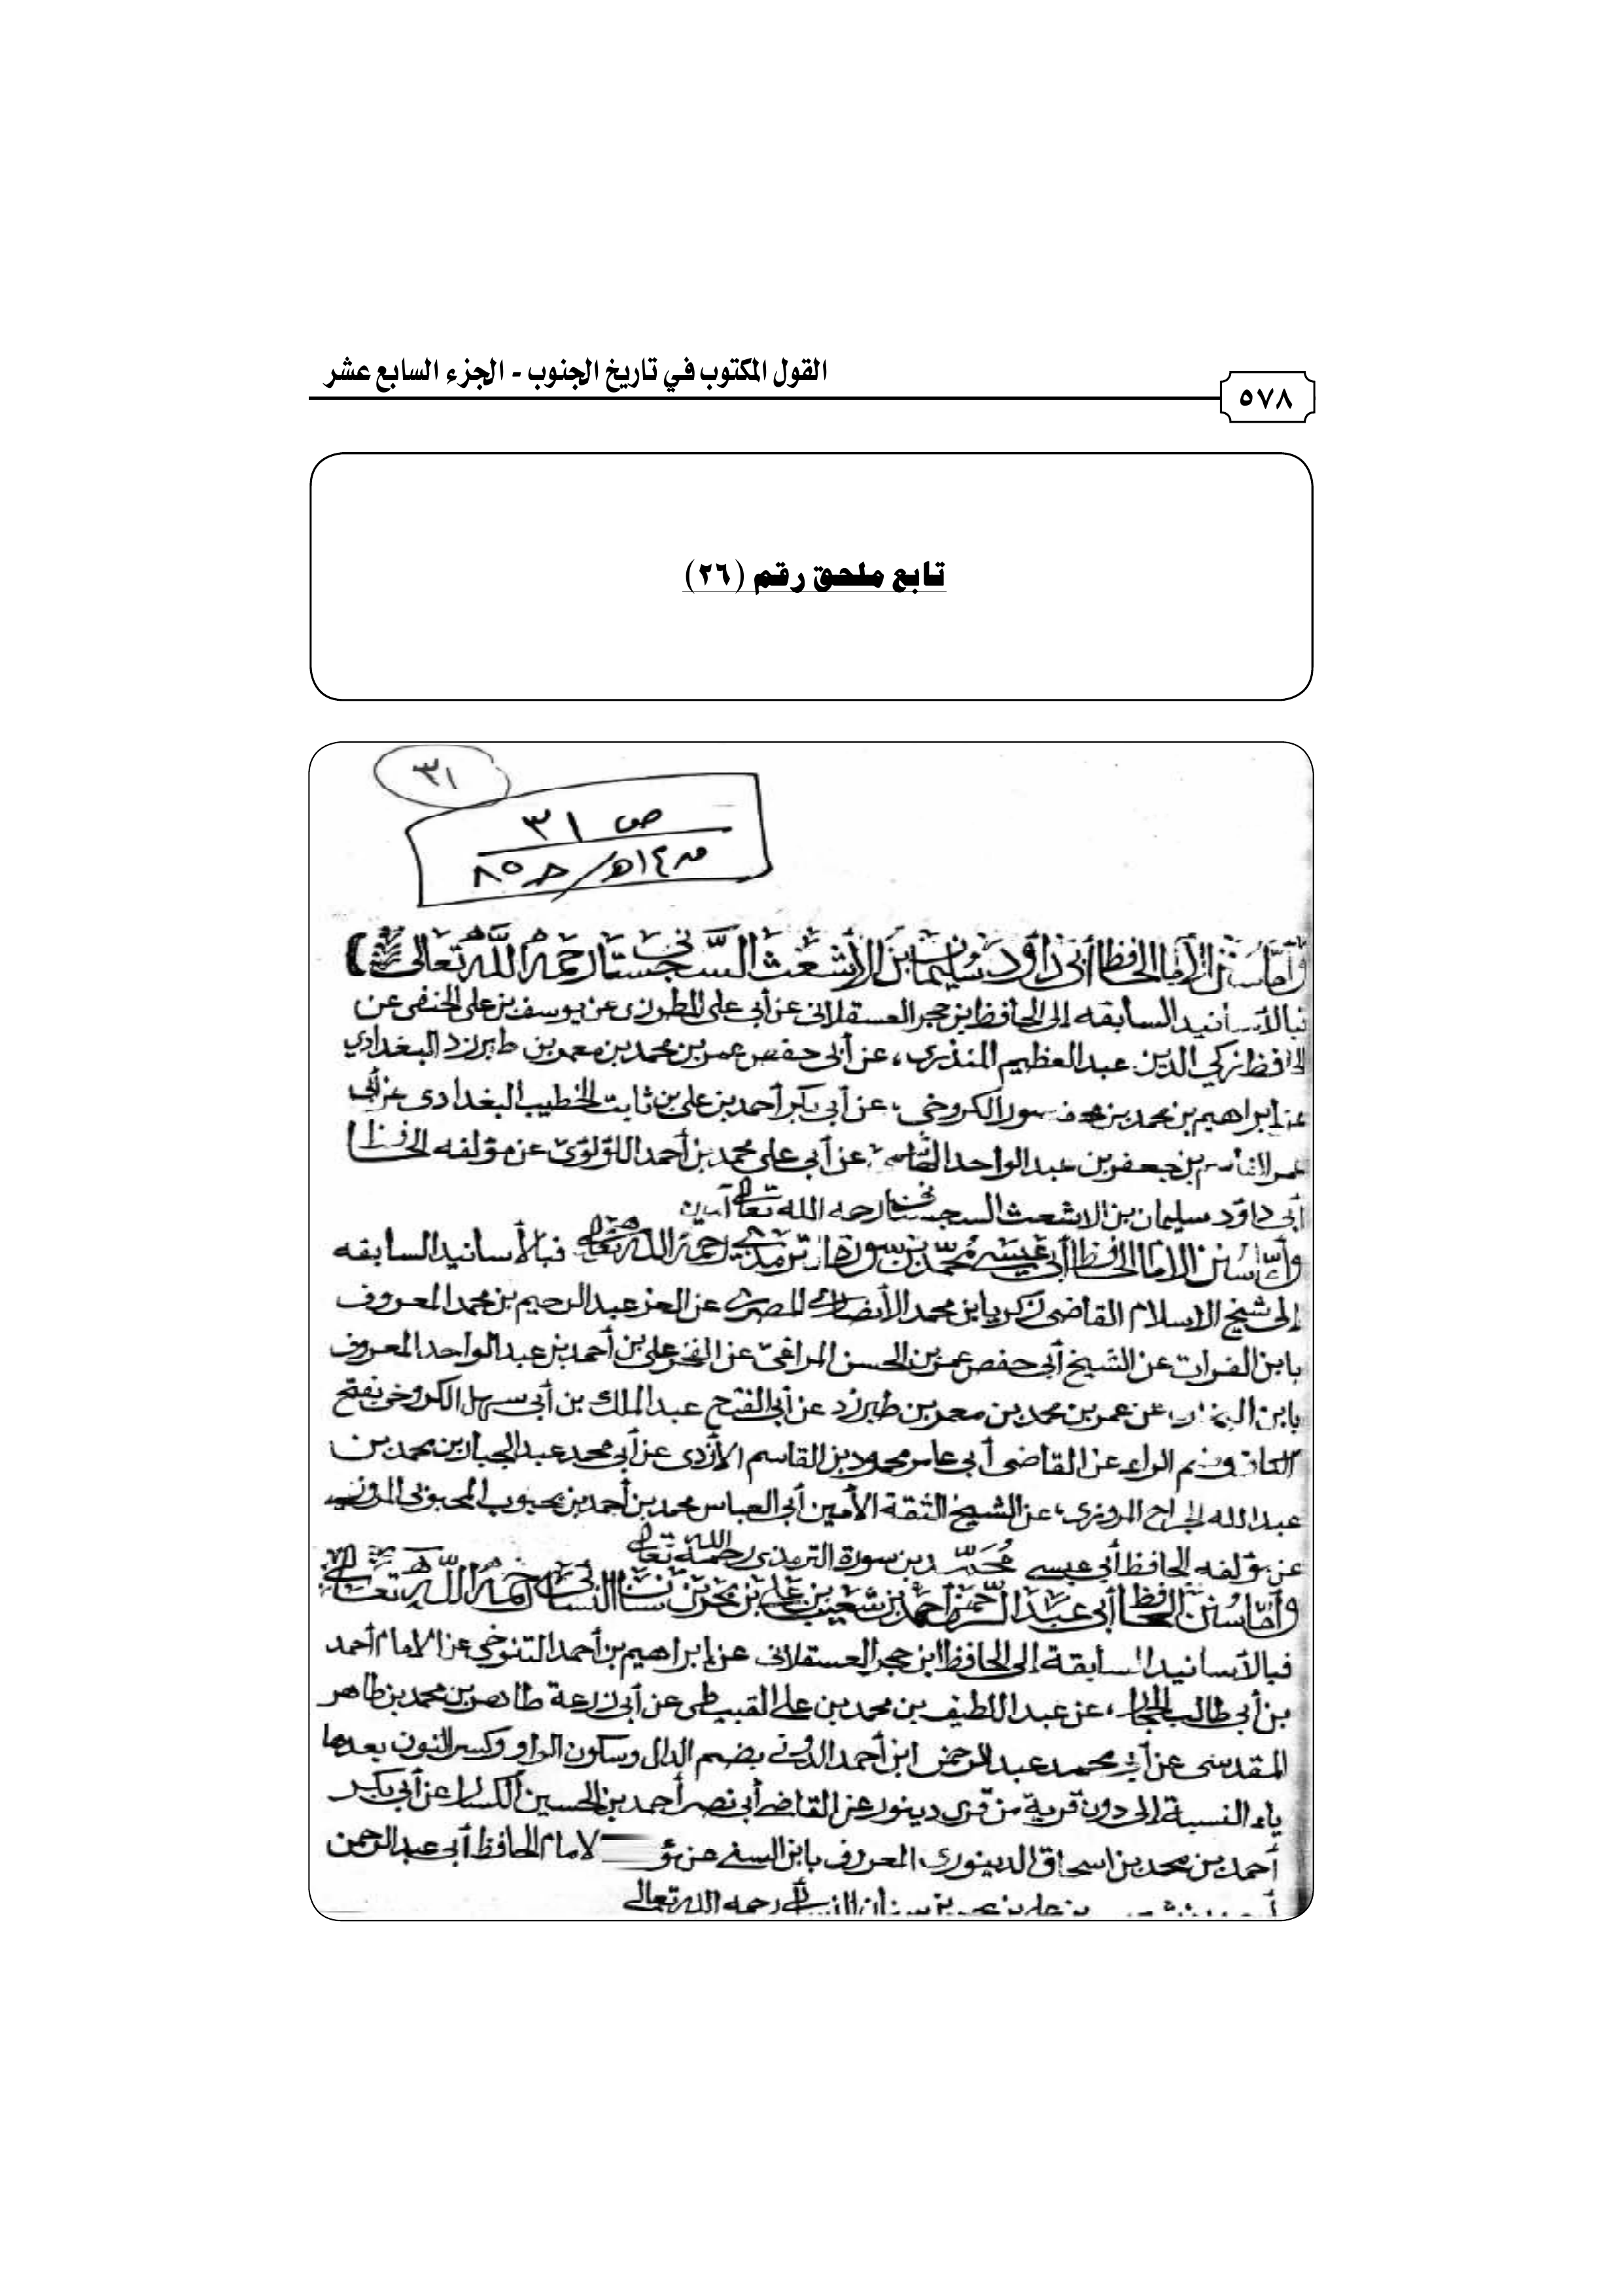 القول المكتوب في تاريخ الجنوب - الجزء السابع عشر
٥٧٨
تابع ملحق رقم (٢٦)
٣١
ص ٣١
وأما سنن الإمام الحافظ أبي داؤد سليمان بن الأشعث السجستاني رحمه الله تعالى
فبالأسانيد السابقه إلى الحافظ ابن حجر العسقلانى عن أبي على المطرزى عن يوسف بن على الحنفى عن
الحافظ زكي الدين عبد العظيم المنذرى، عن أبى حفص عمر بن محمد بن معمر بن طبرزد البغدادي
عن إبراهيم بن محمد بن منصور الكروخي، عن أبى بكر أحمد بن على بن ثابت الخطيب البغدادى عن أبي
عمر القاسم بن جعفر بن عبد الواحد الهاشمي عن أبى على محمد بن أحمد اللؤلؤى عن مؤلفه الحافظ
أبى داؤد سليمان بن الاشعث السجستانى رحمه الله تعالى آمين
وأما سنن الامام الحافظ أبى عيسى محمد بن سورة الترمذي رحمه الله تعالى فبالأسانيد السابقه
إلى شيخ الاسلام القاضى زكريا بن محمد الأنصارى المصرى عن العز عبد الرحيم بن محمد المعروف
بابن الفرات عن الشيخ أبى حفص عمر بن الحسن المراغىّ عن الفخر على بن أحمد بن عبد الواحد المعروف
بابن البخارى، عن عمر بن محمد بن معمر بن طبرزد عن أبى الفتح عبد الملك بن أبى سهل الكروخى بفتح
الكاف وضم الراء عن القاضى أبى عامر محمود بن القاسم الأزدى عن أبى محمد عبد الجبار بن محمد بن
عبد الله الجراح المروزى، عن الشيخ الثقة الأمين أبى العباس محمد بن أحمد بن محبوب المحبوبى المروزى
عن مؤلفه الحافظ أبى عيسى محمّد بن سورة الترمذى رحمه الله تعالى
وأما سنن الحافظ أبى عبد الرحمن أحمد بن شعيب بن على بن بحر بن سنان النسائي رحمه الله تعالى
فبالأسانيد السابقة إلى الحافظ ابن حجر العسقلانى عن إبراهيم بن أحمد التنوخى عن الامام أحمد
بن أبى طالب الحجار، عن عبد اللطيف بن محمد بن على القبيطى عن أبى زرعة طاهر بن محمد بن طاهر
المقدسى عن أبى محمد عبد الرحمن ابن أحمد الدونى بضم الدال وسكون الواو وكسر النون بعدها
ياء النسبة إلى دون قرية من قرى دينور عن القاضى أبى نصر أحمد بن الحسين الكسار عن أبى بكر
أحمد بن محمد بن اسحاق الدينورى المعروف بابن السنى عن الامام الحافظ أبى عبد الرحمن
بن على بن بحر بن سنان النسائى رحمه الله تعالى